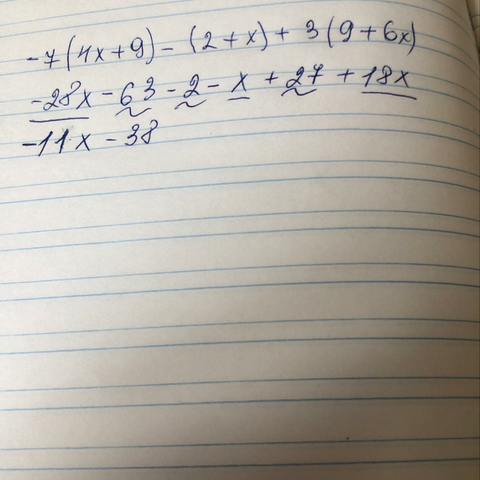 -7(4x+9)-(2+x)+3(9+6x)
-28x-63-2-x+27+18x
-11x-38